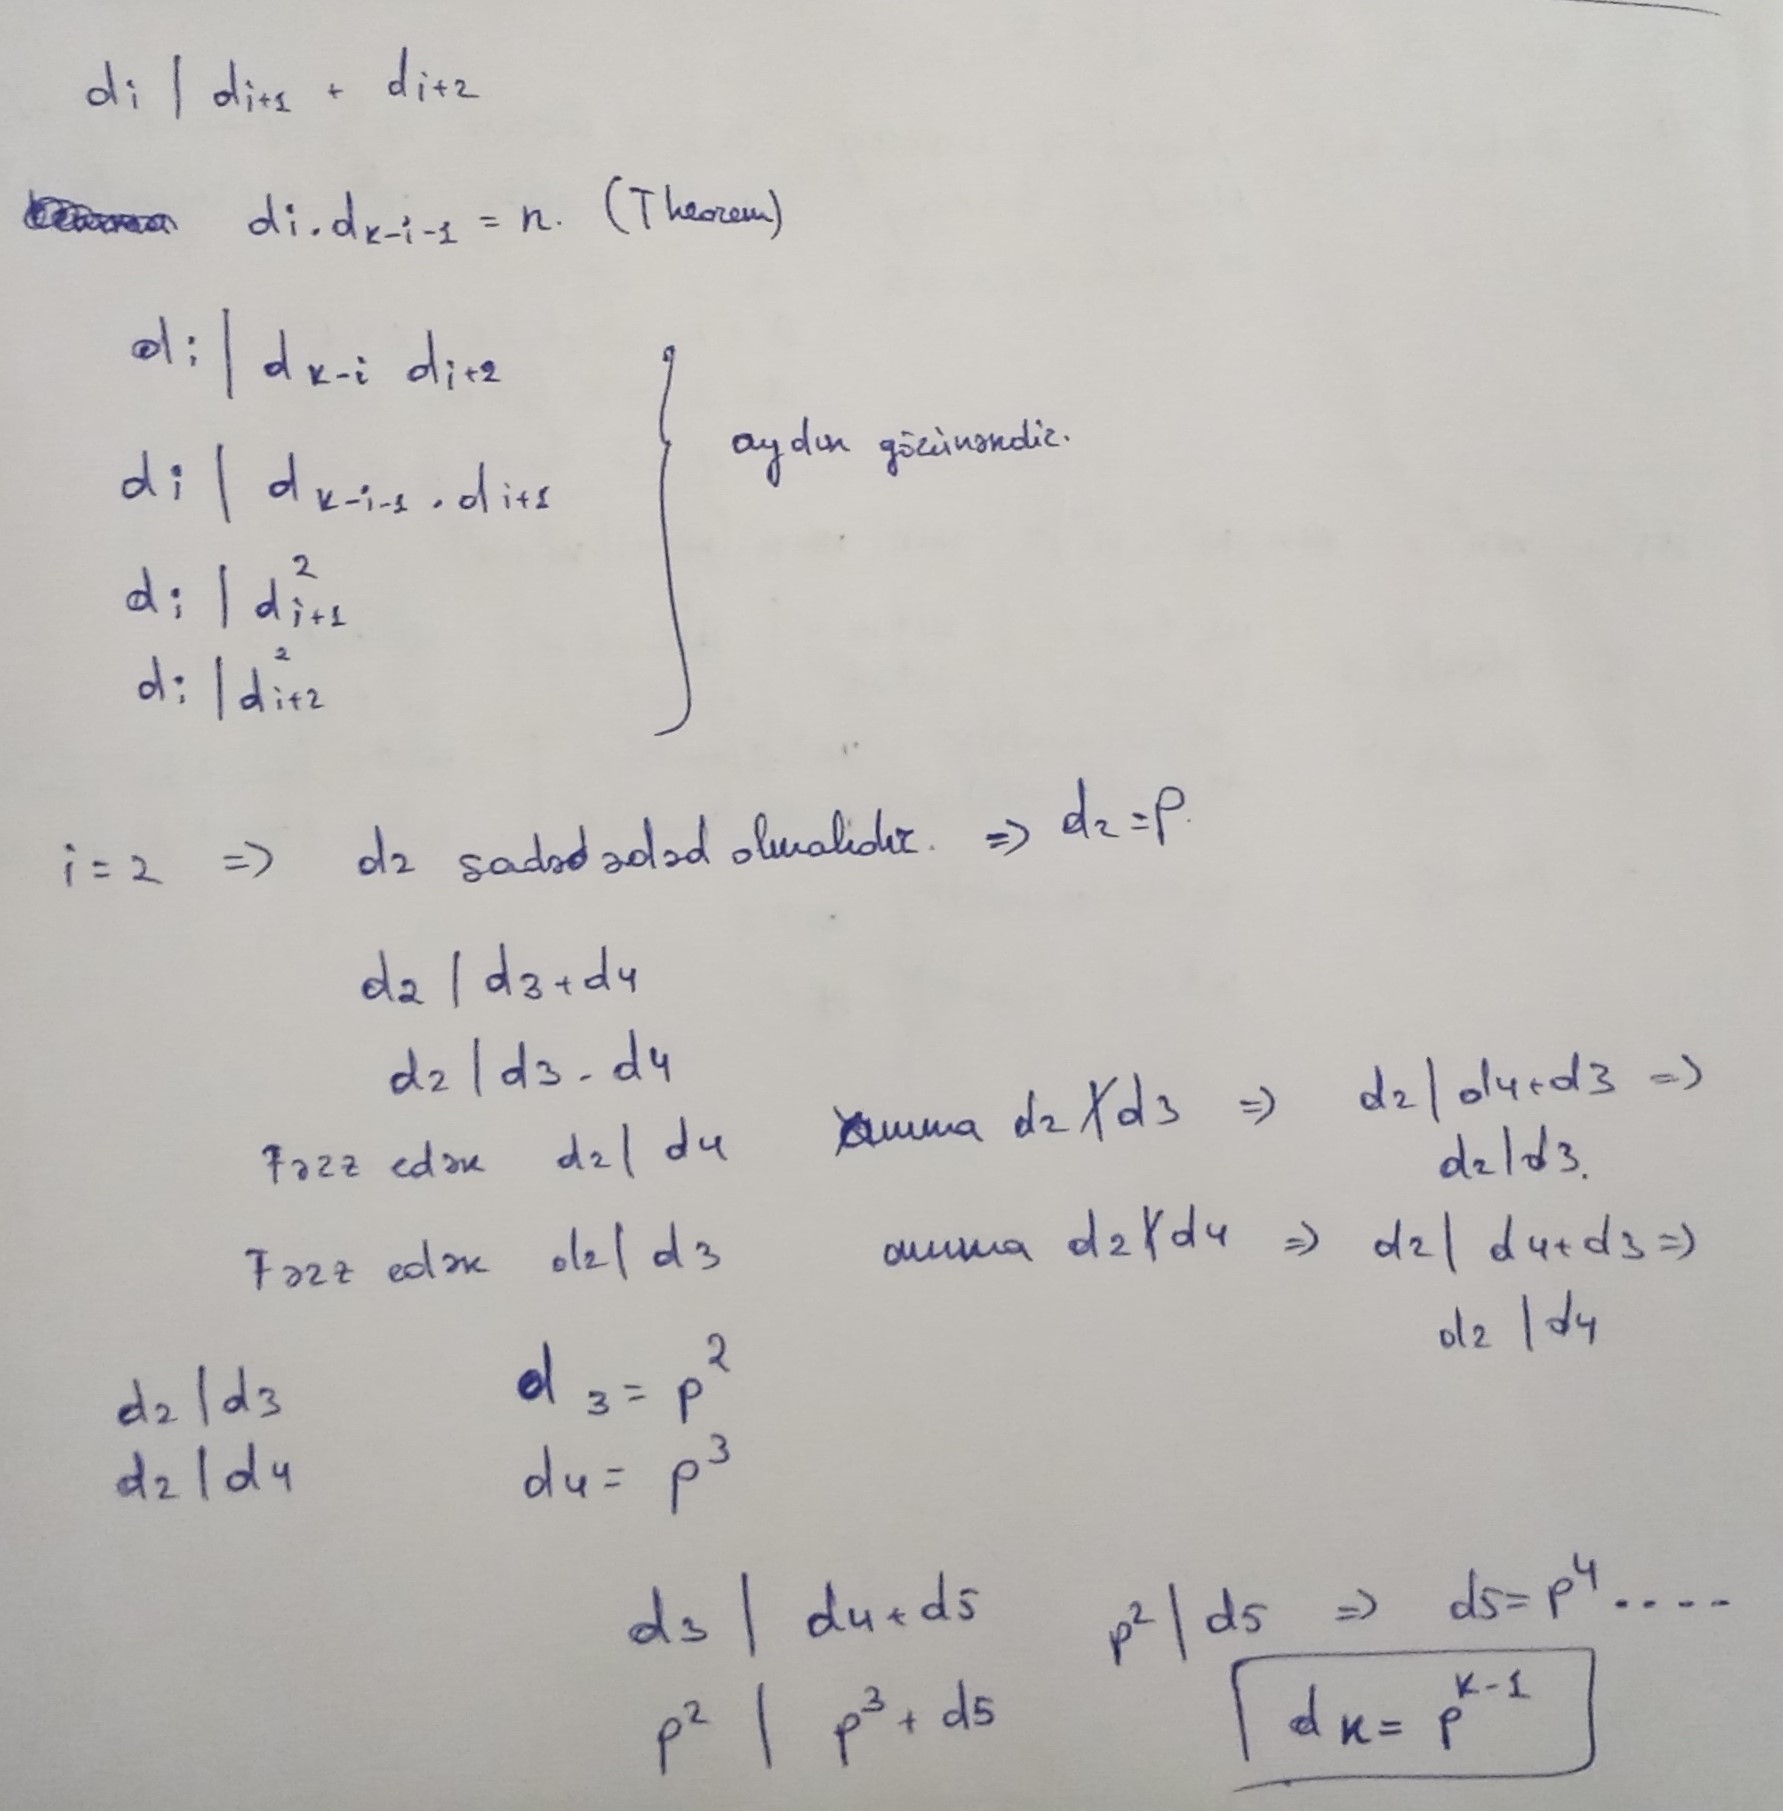 di | di+1 + di+2
di . dk-i-1 = n. (Theorem)
di | dk-i di+2
di | dk-i-1 . di+1
aydın görünəndir.
di | di+1²
di | di+2²
i = 2 => d2 sadəd ədəd olmalıdır. => d2 = p.
d2 | d3 + d4
d2 | d3 - d4
Fərz edək d2 | d4 amma d2 ∤ d3 => d2 | d4 + d3 =>
d2 | d3.
Fərz edək d2 | d3 amma d2 ∤ d4 => d2 | d4 + d3 =>
d2 | d4
d2 | d3 d3 = p²
d2 | d4 d4 = p³
d3 | d4 + d5 p² | d5 => d5 = p⁴ .....
p² | p³ + d5 dk = p^k-1